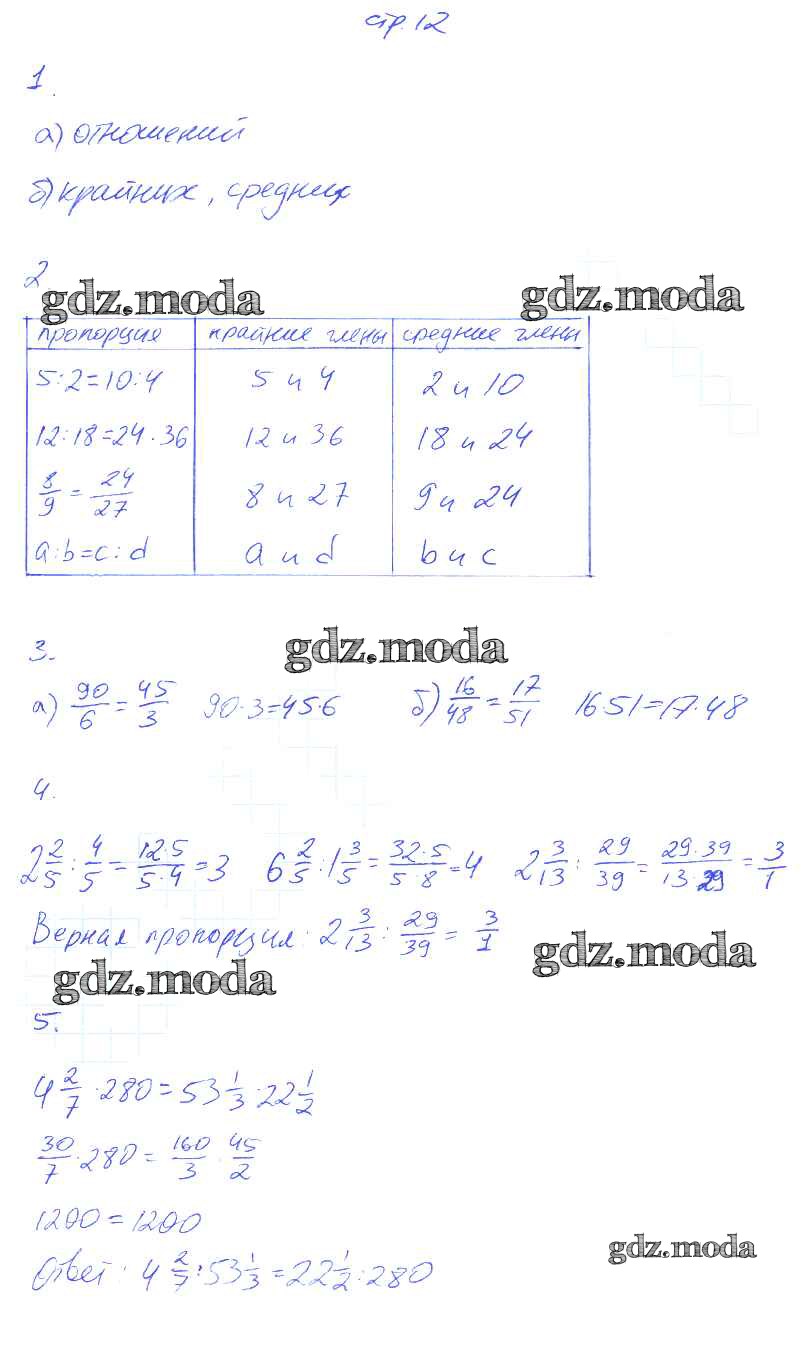 стр. 12
1.
а) отношений
б) крайних, средних
2
gdz.moda gdz.moda
пропорция крайние члены средние члены
5:2=10:4 5 и 4 2 и 10
12:18=24·36 12 и 36 18 и 24
8/9 = 24/27 8 и 27 9 и 24
a:b=c:d a и d b и c
3. gdz.moda
а) 90/6 = 45/3 90·3=45·6 б) 16/48 = 17/51 16·51=17·48
4.
2 2/5 : 4/5 = 12·5/5·4 = 3 6 2/5 : 1 3/5 = 32·5/5·8 = 4 2 3/13 : 29/39 = 29·39/13·29 = 3/1
Верная пропорция: 2 3/13 : 29/39 = 3/1
gdz.moda gdz.moda
5.
4 2/7 · 280 = 53 1/3 · 22 1/2
30/7 · 280 = 160/3 · 45/2
1200 = 1200
Ответ: 4 2/7 : 53 1/3 = 22 1/2 : 280
gdz.moda